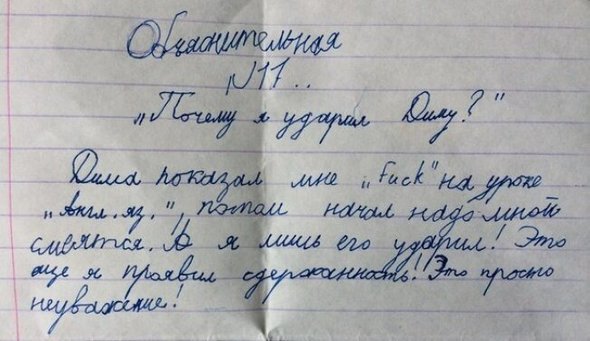 Объяснительная
№17..
„Почему я ударил Диму?"
Дима показал мне „Fuck" на уроке
„Англ. яз.", потом начал надо мной
смеятся. А я лишь его ударил! Это
още я проявил сдержанность! Это просто
неуважение!